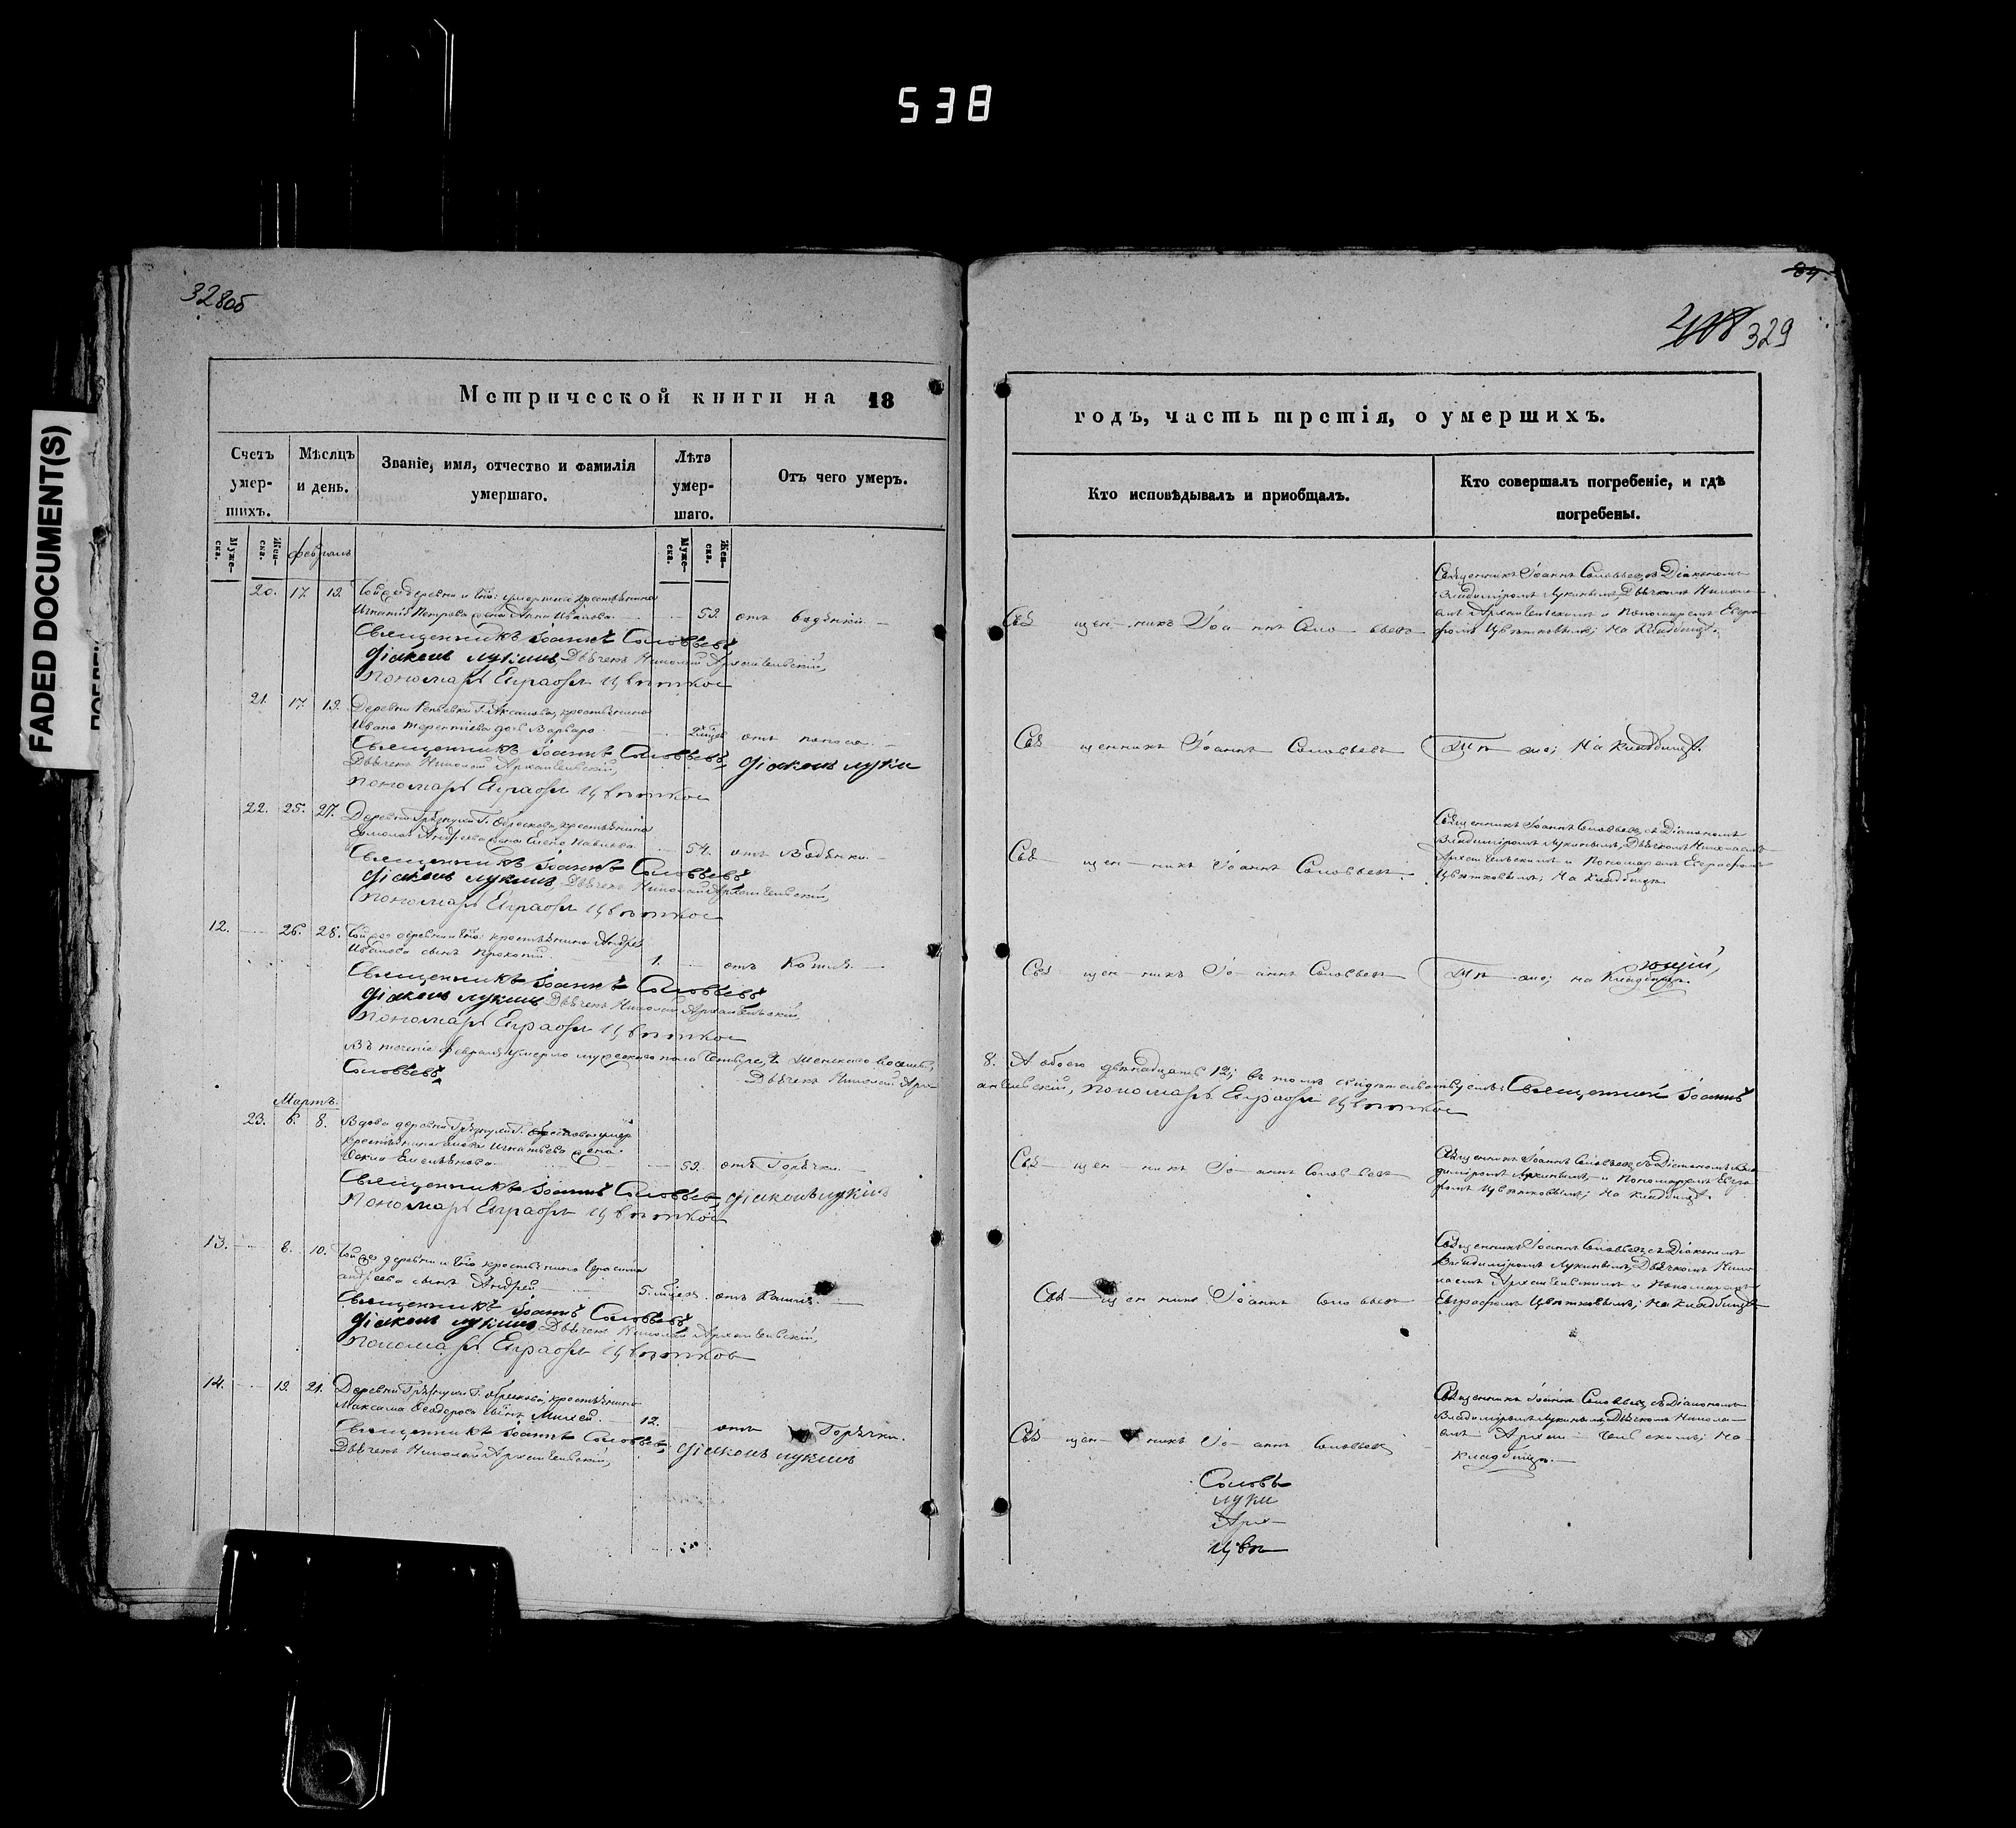 538
328об
84.
408 329
FADED DOCUMENT(S)
Метрической книги на 18
Счетъ умер-шихъ.
Мѣсяцъ и день.
Званіе, имя, отчество и фамилія умершаго.
Лѣта умер-шаго.
Отъ чего умеръ.
Муже-ска.
Жен-ска.
Муже-ска.
Жен-ска.
февраль
20. 17 19. Той же деревни и его: умершаго крестьянина
Игнатія Петрова жена Анна 53. отъ водянки.
Священникъ Іоаннъ Соловьевъ
Діаконъ Лукинъ, Дьячекъ Николай Архангельскій,
Пономарь Евграфъ Цвѣтков
21. 17 19. Деревни крестьянина
Ивана Терентіева дочь Варвара отъ поноса.
Священникъ Іоаннъ Соловьевъ, Діаконъ Луки
Дьячекъ Николай Архангельскій,
Пономарь Евграфъ Цвѣтков
22. 25. 27. Деревни крестьянина
Андреева жена Елена Павлова 54. отъ Водянки.
Священникъ Іоаннъ Соловьевъ
Діаконъ Лукинъ, Дьячекъ Николай Архангельскій,
Пономарь Евграфъ Цвѣтков
12. 26. 28. Той же деревни и его: крестьянина Андрея
Иванова сынъ Прокопій 1. отъ Кашля.
Священникъ Іоаннъ Соловьевъ
Діаконъ Лукинъ Дьячекъ Николай Архангельскій,
Пономарь Евграфъ Цвѣтков
Въ теченіе февраля умерло мужескаго пола четыре, 4. женскаго восемь,
Соловьевъ, Дьячекъ Николай Арх
Мартъ.
23. 6. 8. Вдова деревни умер
крестьянина Игнатьева жена
Емельянова 59. отъ Горячки.
Священникъ Іоаннъ Соловьев, Діаконъ Лукинъ
Пономарь Евграфъ Цвѣтков
13. 8. 10. Той же деревни и его крестьянина Герасима
Андреева сынъ Андрей 5. мѣсяц. отъ Кашля.
Священникъ Іоаннъ Соловьевъ
Діаконъ Лукинъ, Дьячекъ Николай Архангельскій,
Пономарь Евграфъ Цвѣтков
14. 19. 21. Деревни крестьянина
Максима Ѳеодорова сынъ 12. отъ Горячки.
Священникъ Іоаннъ Соловьев, Діаконъ Лукинъ
Дьячекъ Николай Архангельскій,
годъ, часть третія, о умершихъ.
Кто исповѣдывалъ и приобщалъ.
Кто совершалъ погребеніе, и гдѣ погребены.
Священникъ Іоаннъ Соловьевъ
Священникъ Іоаннъ Соловьевъ, съ Діакономъ
Владиміромъ Лукинымъ, Дьячкомъ Никола-
емъ Архангельскимъ и Пономаремъ Евгра-
фомъ Цвѣтковымъ; На кладбищѣ.
Священникъ Іоаннъ Соловьевъ
Тѣ же; На кладбищѣ.
Священникъ Іоаннъ Соловьевъ
Священникъ Іоаннъ Соловьевъ, съ Діакономъ
Владиміромъ Лукинымъ, Дьячкомъ Николаемъ
Архангельскимъ и Пономаремъ Евграфомъ
Цвѣтковымъ; На кладбищѣ.
Священникъ Іоаннъ Соловьевъ
Тѣ же; на кладбищѣ.
8. А обоего двѣнадцать 12; въ томъ свидѣтельствуемъ: Священникъ Іоаннъ
ангельскій, Пономарь Евграфъ Цвѣтков
Священникъ Іоаннъ Соловьевъ
Священникъ Іоаннъ Соловьевъ, съ Діакономъ Вла-
диміромъ Лукинымъ, и Пономаремъ Евгра-
фомъ Цвѣтковымъ; На кладбищѣ.
Священникъ Іоаннъ Соловьевъ
Священникъ Іоаннъ Соловьевъ, съ Діакономъ
Владиміромъ Лукинымъ, Дьячкомъ Нико-
лаемъ Архангельскимъ и Пономаремъ
Евграфомъ Цвѣтковымъ; На кладбищѣ
Священникъ Іоаннъ Соловьевъ
Священникъ Іоаннъ Соловьевъ, съ Діакономъ
Владиміромъ Лукинымъ, Дьячкомъ Никола-
емъ Архангельскимъ; На
кладбищѣ.
Соловь
Луки
Арх
Цвѣ